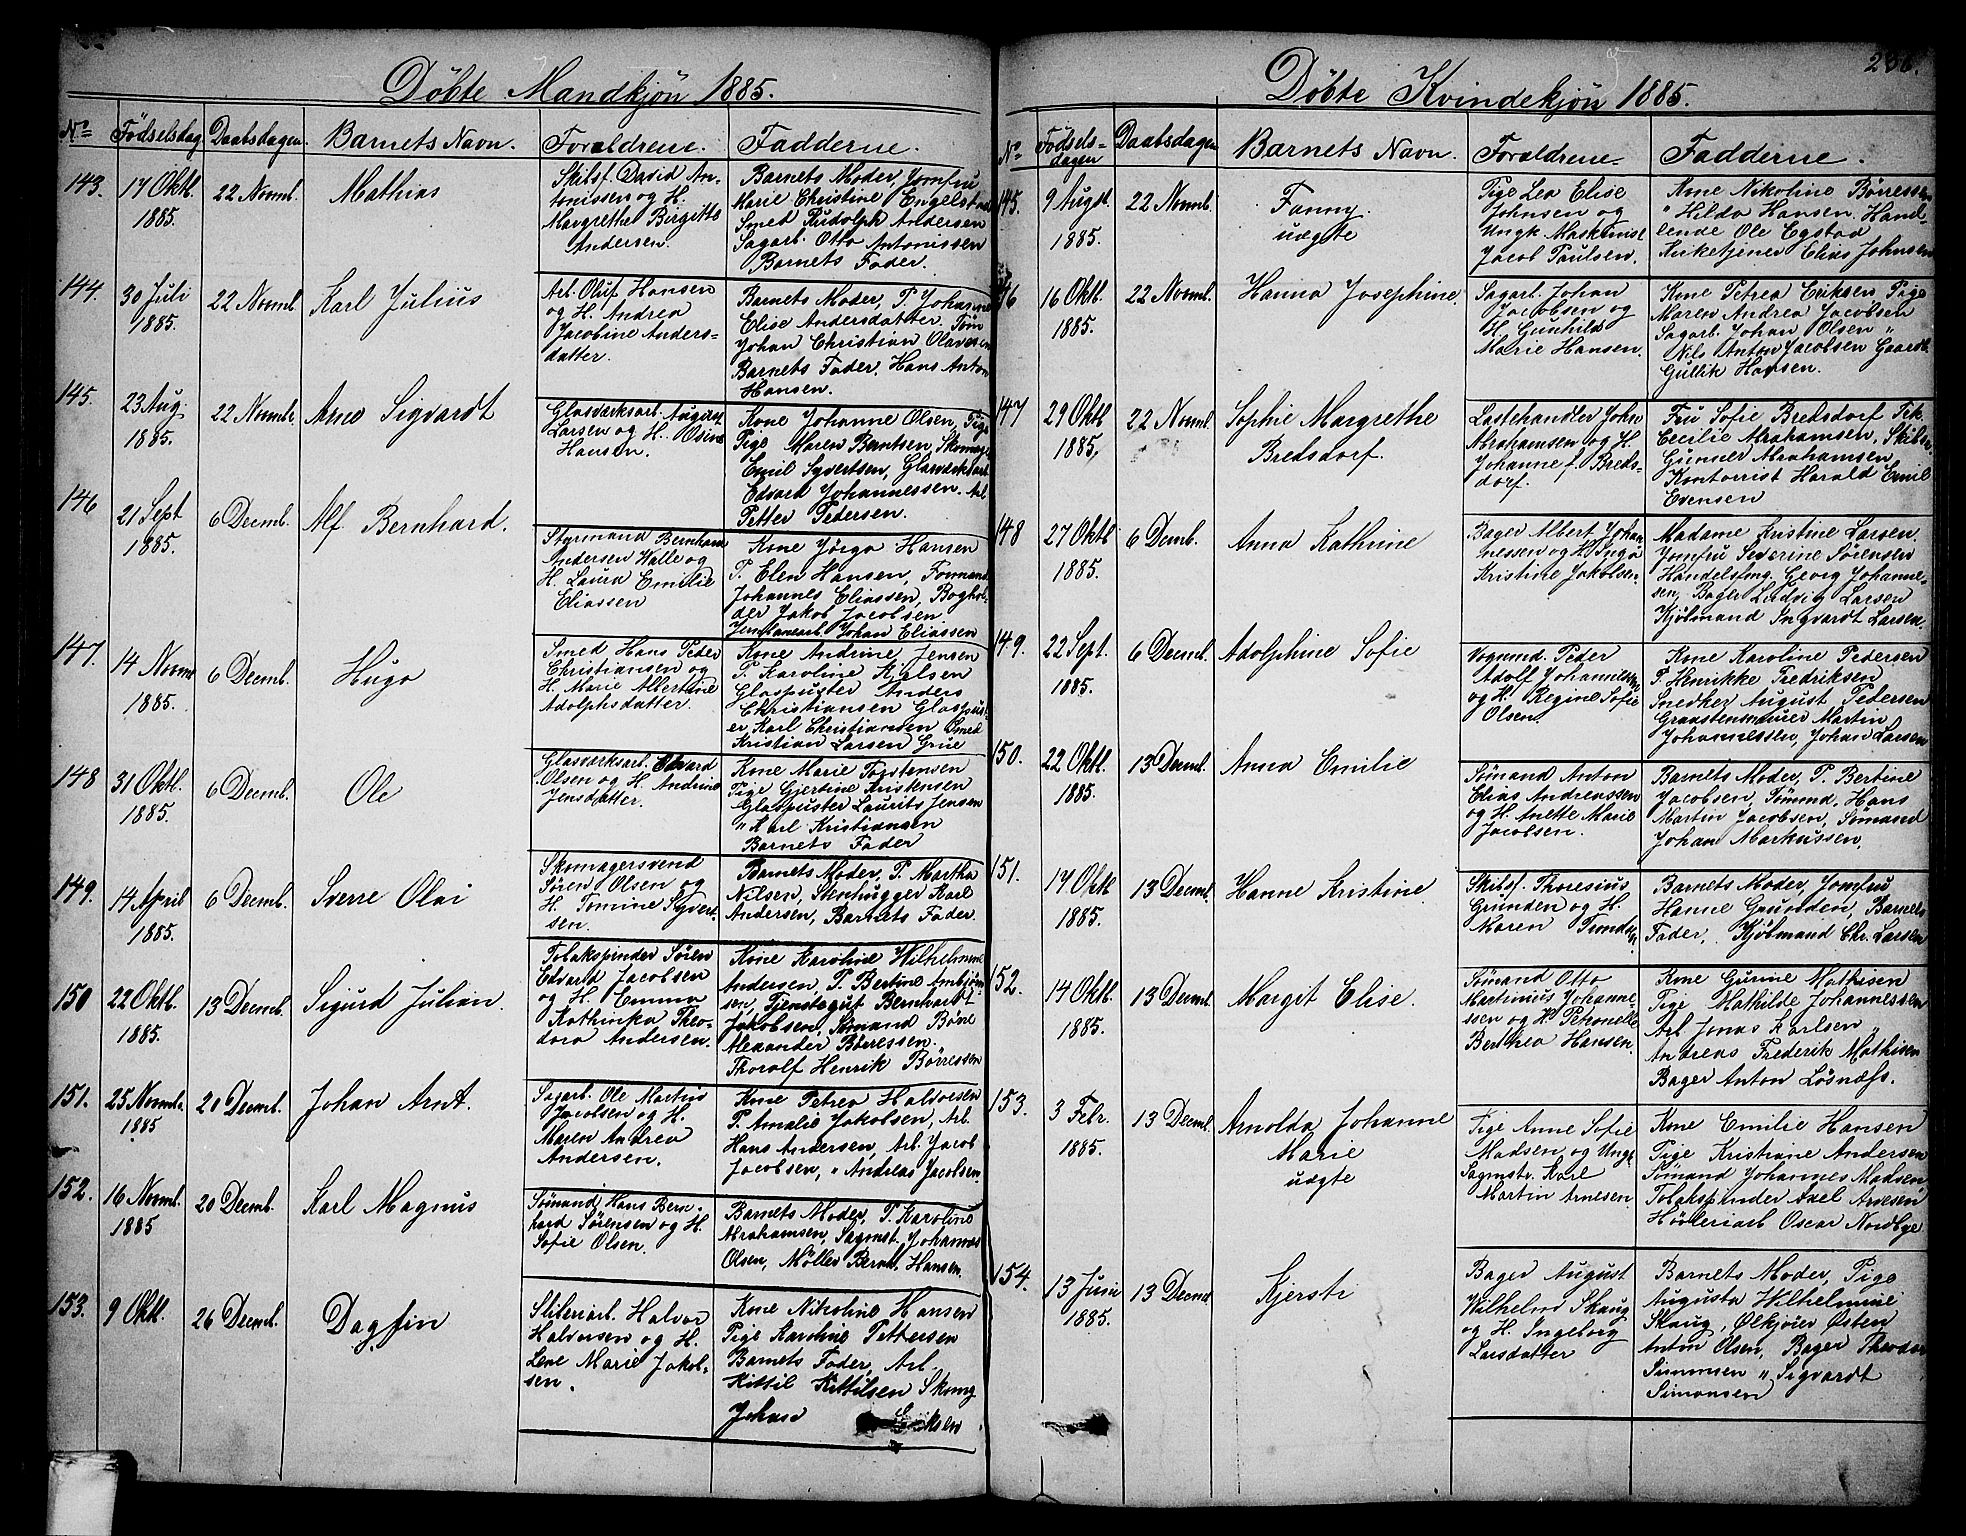 Döbte Mandkjön 1885.
No Födselsdag Daabsdagen. Barnets Navn. Foraldrene. Fadderne.
143. 17 Oktb. 1885. 22 Novmb. Mathias
Skibsf. David An-
tonissen og H.
Margrethe Birgitte
Andersen.
Barnets Moder, Jomfru
Marie Christine Engelstad
Smed Rudolph Andersen
Sagarb. Otto Antonissen
Barnets Fader.
144. 30 Juli 1885. 22 Novmb. Karl Julius
Arb. Oluf Hansen
og H. Andrea
Jacobine Anders-
datter.
Barnets Moder, P. Johanne
Elise Andersdatter, Töm
Johan Christian Olavesen
Barnets Fader, Hans Anton
Hansen.
145. 23 Aug. 1885. 22 Novmb. Arne Sigvardt
Glasværksarb. August
Larsen og H. Osine
Hansen.
Kone Johanne Olsen, Pige
Pige Maren Berntsen, Skomag.
Emil Syvertsen, Glasværksarb
Edvard Johannessen. Arb.
Petter Pedersen.
146 21 Sept 1885. 6 Decmb. Alf Bernhard.
Styrmand Bernhard
Andersen Walle og
H. Laura Emilie
Eliassen
Kone Jörgo Hansen
P. Elen Hansen, Formand
Johannes Eliassen, Boghol-
der Jakob Jacobsen
Jernbanearb. Johan Eliassen
147. 14 Novmb 1885. 6 Decmb. Hugo
Smed Hans Peder
Christiansen og
H. Marie Albertine
Adolphsdatter.
Kone Andrine Jensen
P. Karoline Nielsen
Glaspuster Anders
Christiansen Glaspus-
er, Karl Christiansen Smed
Kristian Larsen Grue
148 31 Oktb. 1885. 6 Decmb. Ole
Glasværksarb. Edvard
Olsen og H. Andrine
Jensdatter.
Kone Marie Torstensen
Pige Gjertine Kristensen
Glaspuster Laurits Jensen
" Karl Kristiansen
Barnets Fader
149. 14 April 1885. 6 Decmb. Sverre Olai
Skomagersvend
Sören Olsen og
H. Tomine Syvert-
sen.
Barnets Moder, P. Martha
Nilsen, Stenhugger Karl
Andersen, Barnets Fader.
150 22 Oktb. 1885. 13 Decmb. Sigurd Julian.
Tobakspinder Sören
Edvard Jacobsen
og H. Emma
Kathinka Theo-
dora Andersen.
Kone Karoline Wilhelmine
Andersen, P. Bertine Ambjörn-
sen, Tjenstegut Bernhardt
Jakobsen, Sömand Böne
Alexander Börressen.
Thorolf Henrik Börressen
151. 25 Novmb. 1885 20 Decmb. Johan Arnt.
Sagarb. Ole Martin
Jacobsen og H.
Maren Andrea
Andersen.
Kone Petrea Halvorsen
P. Amalie Jakobsen, Arb.
Hans Andersen, Arb. Jacob
Jacobsen, " Andreas Jacobsen.
152. 16 Novmb. 1885 20 Decmb. Karl Magnus
Sömand Hans Bern-
hard Sörensen og H.
Sofie Olsen.
Barnets Moder, P. Karoline
Abrahamsen, Sagmst. Johannes
Olsen, Möller Bernt. Hansen.
153. 9 Oktb. 26 Decmb. Dagfin
Sliberiarb. Halvor
Halvorsen og H.
Lene Marie Jakob-
sen.
Kone Nikoline Hansen
Pige Karoline Pettersen
Barnets Fader, Arb.
Kittil Kittilsen Skomg
Johan Eriksen
Döbte Kvindekjön 1885. 236.
No. Födsels-dagen Daabsdagen Barnets Navn. Foraldrene. Fadderne.
145. 9 Augst. 1885. 22 Novmb. Fanny. uægte
Pige Lea Elise
Johnsen og
Ungk. Maskinist
Jacob Paulsen.
Kone Nikoline Börressen
" Hilda Hansen. Hand-
lende Ole Egstad
Kirketjener Elias Johnsen
146 16 Oktb. 1885. 22 Novmb. Hanna Josephine
Sagarb. Johan
Jacobsen og
H. Gunhild
Marie Hansen.
Kone Petrea Eriksen, Pige
Maren Andrea Jacobsen
Sagarb. Johan Olsen "
Nils Anton Jacobsen Gaardb.
Gullik Hansen.
147 29 Oktb 1885. 22 Novmb. Sophie Margrethe Bredsdorf.
Lastehandler John
Abrahamsen og H.
Johanne f. Breds-
dorf.
Fru Sofie Bredsdorf Frk
Cecilie Abrahamsen, Skibs
Gunner Abrahamsen
Kontorrist Harald Emil
Evensen
148 27 Oktb 1885. 6 Decmb. Anna Kathrine
Bager Albert Johan
nessen og H. Inga
Kristine Jakobsen.
Madame Kristine Larsen,
Jomfru Severine Sörensen
Handelsfmg. Georg Johanne-
sen, Bager Ludvig Larsen
Kjöbmand Ingvardt Larsen.
149. 22 Sept. 1885. 6 Decmb. Adolphine Sofie
Vognmd. Peder
Adolf Johannessen
og H. Regine Sofie
Olsen.
Kone Karoline Pedersen
P. Henrikke Fredriksen
Snedker August Pedersen
Graastensmurer Martin
Johannessen, Johan Larsen
150. 22 Oktb. 1885. 13 Decmb. Anna Emilie
Sömand Anton
Elias Andreassen
og H. Anette Marie
Jacobsen.
Barnets Moder, P. Bertine
Jacobsen, Tömmd. Hans
Martin Jacobsen, Sömand
Johan Markussen.
151. 17 Oktb 1885. 13 Decmb. Hanne Kristine.
Skibsf. Thoresius
Grunden og H.
Maren
Barnets Moder, Jomfru
Hanne Grunden, Barnets
Fader, Kjöbmand Chr. Larsen
152. 14 Oktb. 1885. 13 Decmb. Margit Elise.
Sömand Otto
Martinius Johanne
ssen og H. Petronelle
Berthea Hansen.
Kone Gurine Mathisen
Pige Mathilde Johannessen
Arb. Jonas Karlsen "
Andreas Frederik Mathisen
Bager Anton Lösnæss.
153. 3 Febr. 1885. 13 Decmb. Arnolda Johanne Marie uægte
Pige Anne Sofie
Madsen og Ungk
Sagmstr. Karl
Martin Arnesen
Kone Emilie Hansen
Pige Kristiane Andersen
Sömand Johannes Madsen
Tobakspinder Axel Arnesen
Hövleriarb Oscar Nordbye
154. 13 Juni 1885. 13 Decmb Kjersti
Bager August
Wilhelm Skaug
og H. Ingeborg
Larsdatter
Barnets Moder, Pige
Augusta Wilhelmine
Skaug, Ölkjörer Östen
Anton Olsen, Bager Theodor
Simonsen " Sigvardt
Simonsen